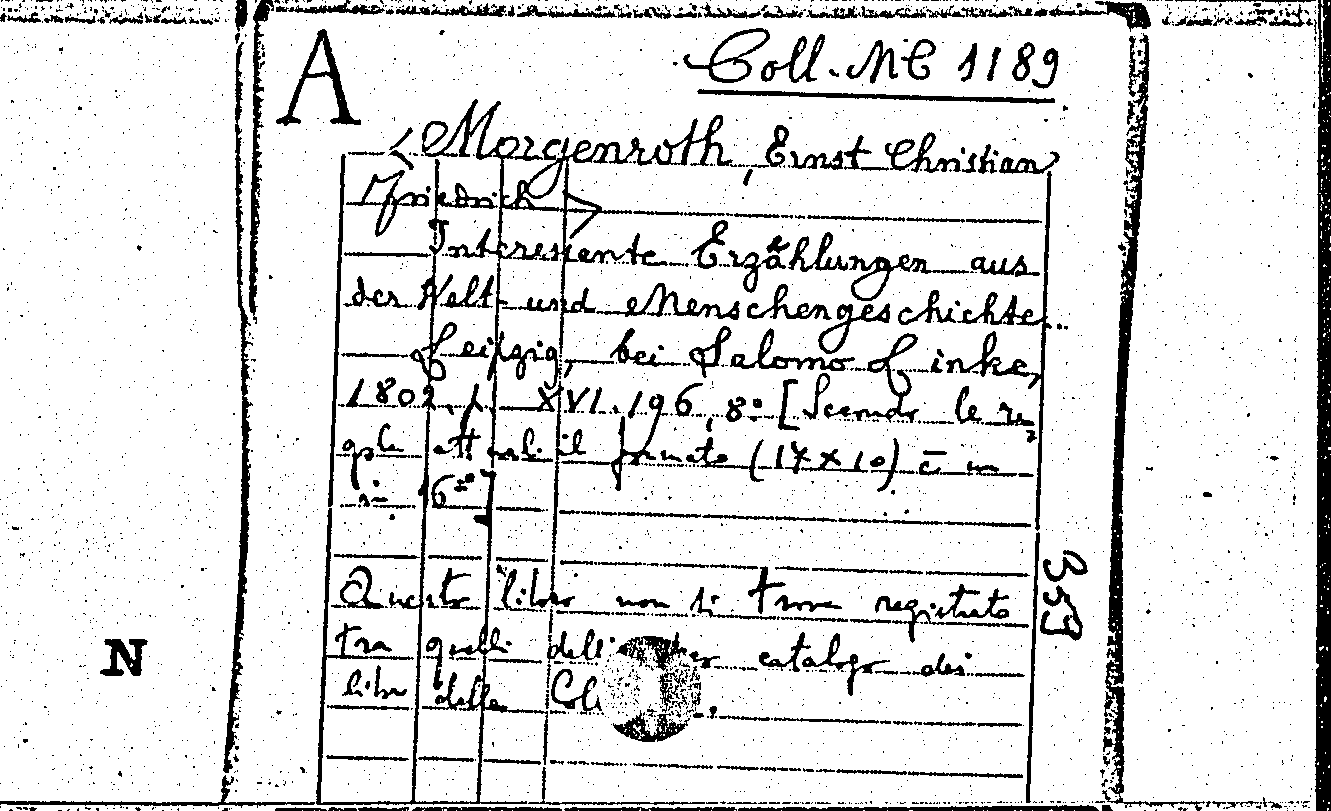 A
Coll. MC 1189
< Morgenroth, Ernst Christian
Friedrich >
Interessante Erzählungen aus
der Welt- und Menschengeschichte...
Leipzig, bei Salomo Linke,
1802, p. XVI. 196, 8° [Secondo le re
gole attuali il formato (17 x 10) è un
in 16°]
Questo libro non si trova registrato
tra quelli catalogo dei
libri della
353
N